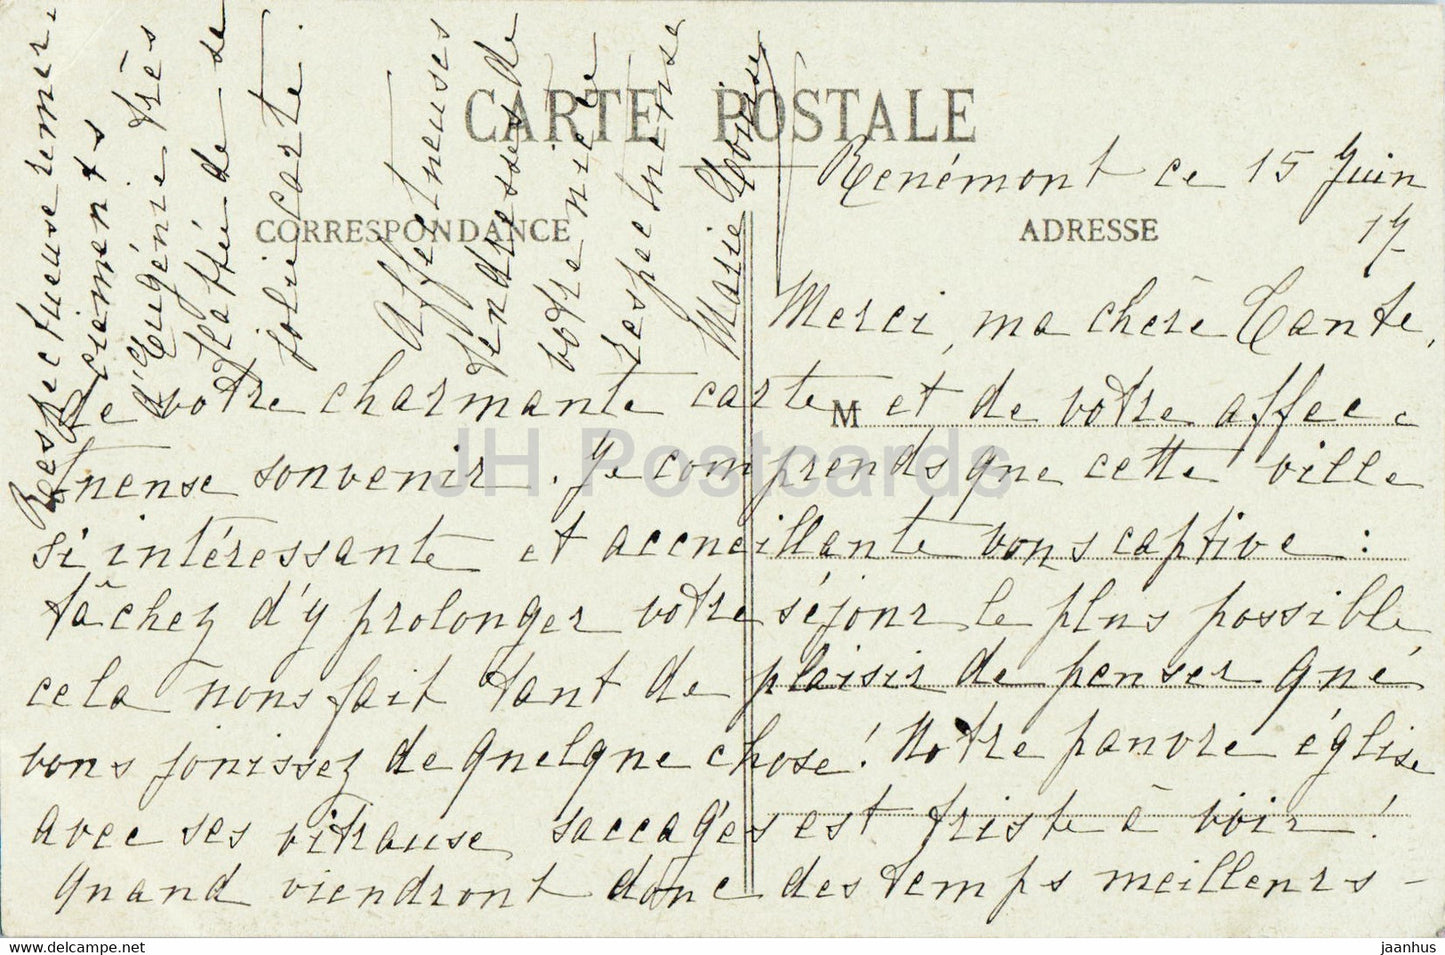 CARTE POSTALE
CORRESPONDANCE
ADRESSE
M
Renémont ce 15 Juin
17
Merci, ma chère Tante,
de votre charmante carte et de votre affec-
tueuse souvenir. Je comprends que cette ville
si intéressante et accueillante vous captive :
tâchez d'y prolonger votre séjour le plus possible
cela nous fait tant de plaisir de penser que
vous jouissez de quelque chose ! Notre pauvre église
avec ses vitraux saccagés est triste à voir !
Quand viendront donc des temps meilleurs -
Respectueuse remer-
ciements
d'Eugénie très
flattée de sa
jolie carte.
Affectueuses
tendresses de
votre nièce
respectueuse
Marie Louise
JH Postcards
www.delcampe.net
jaanhus